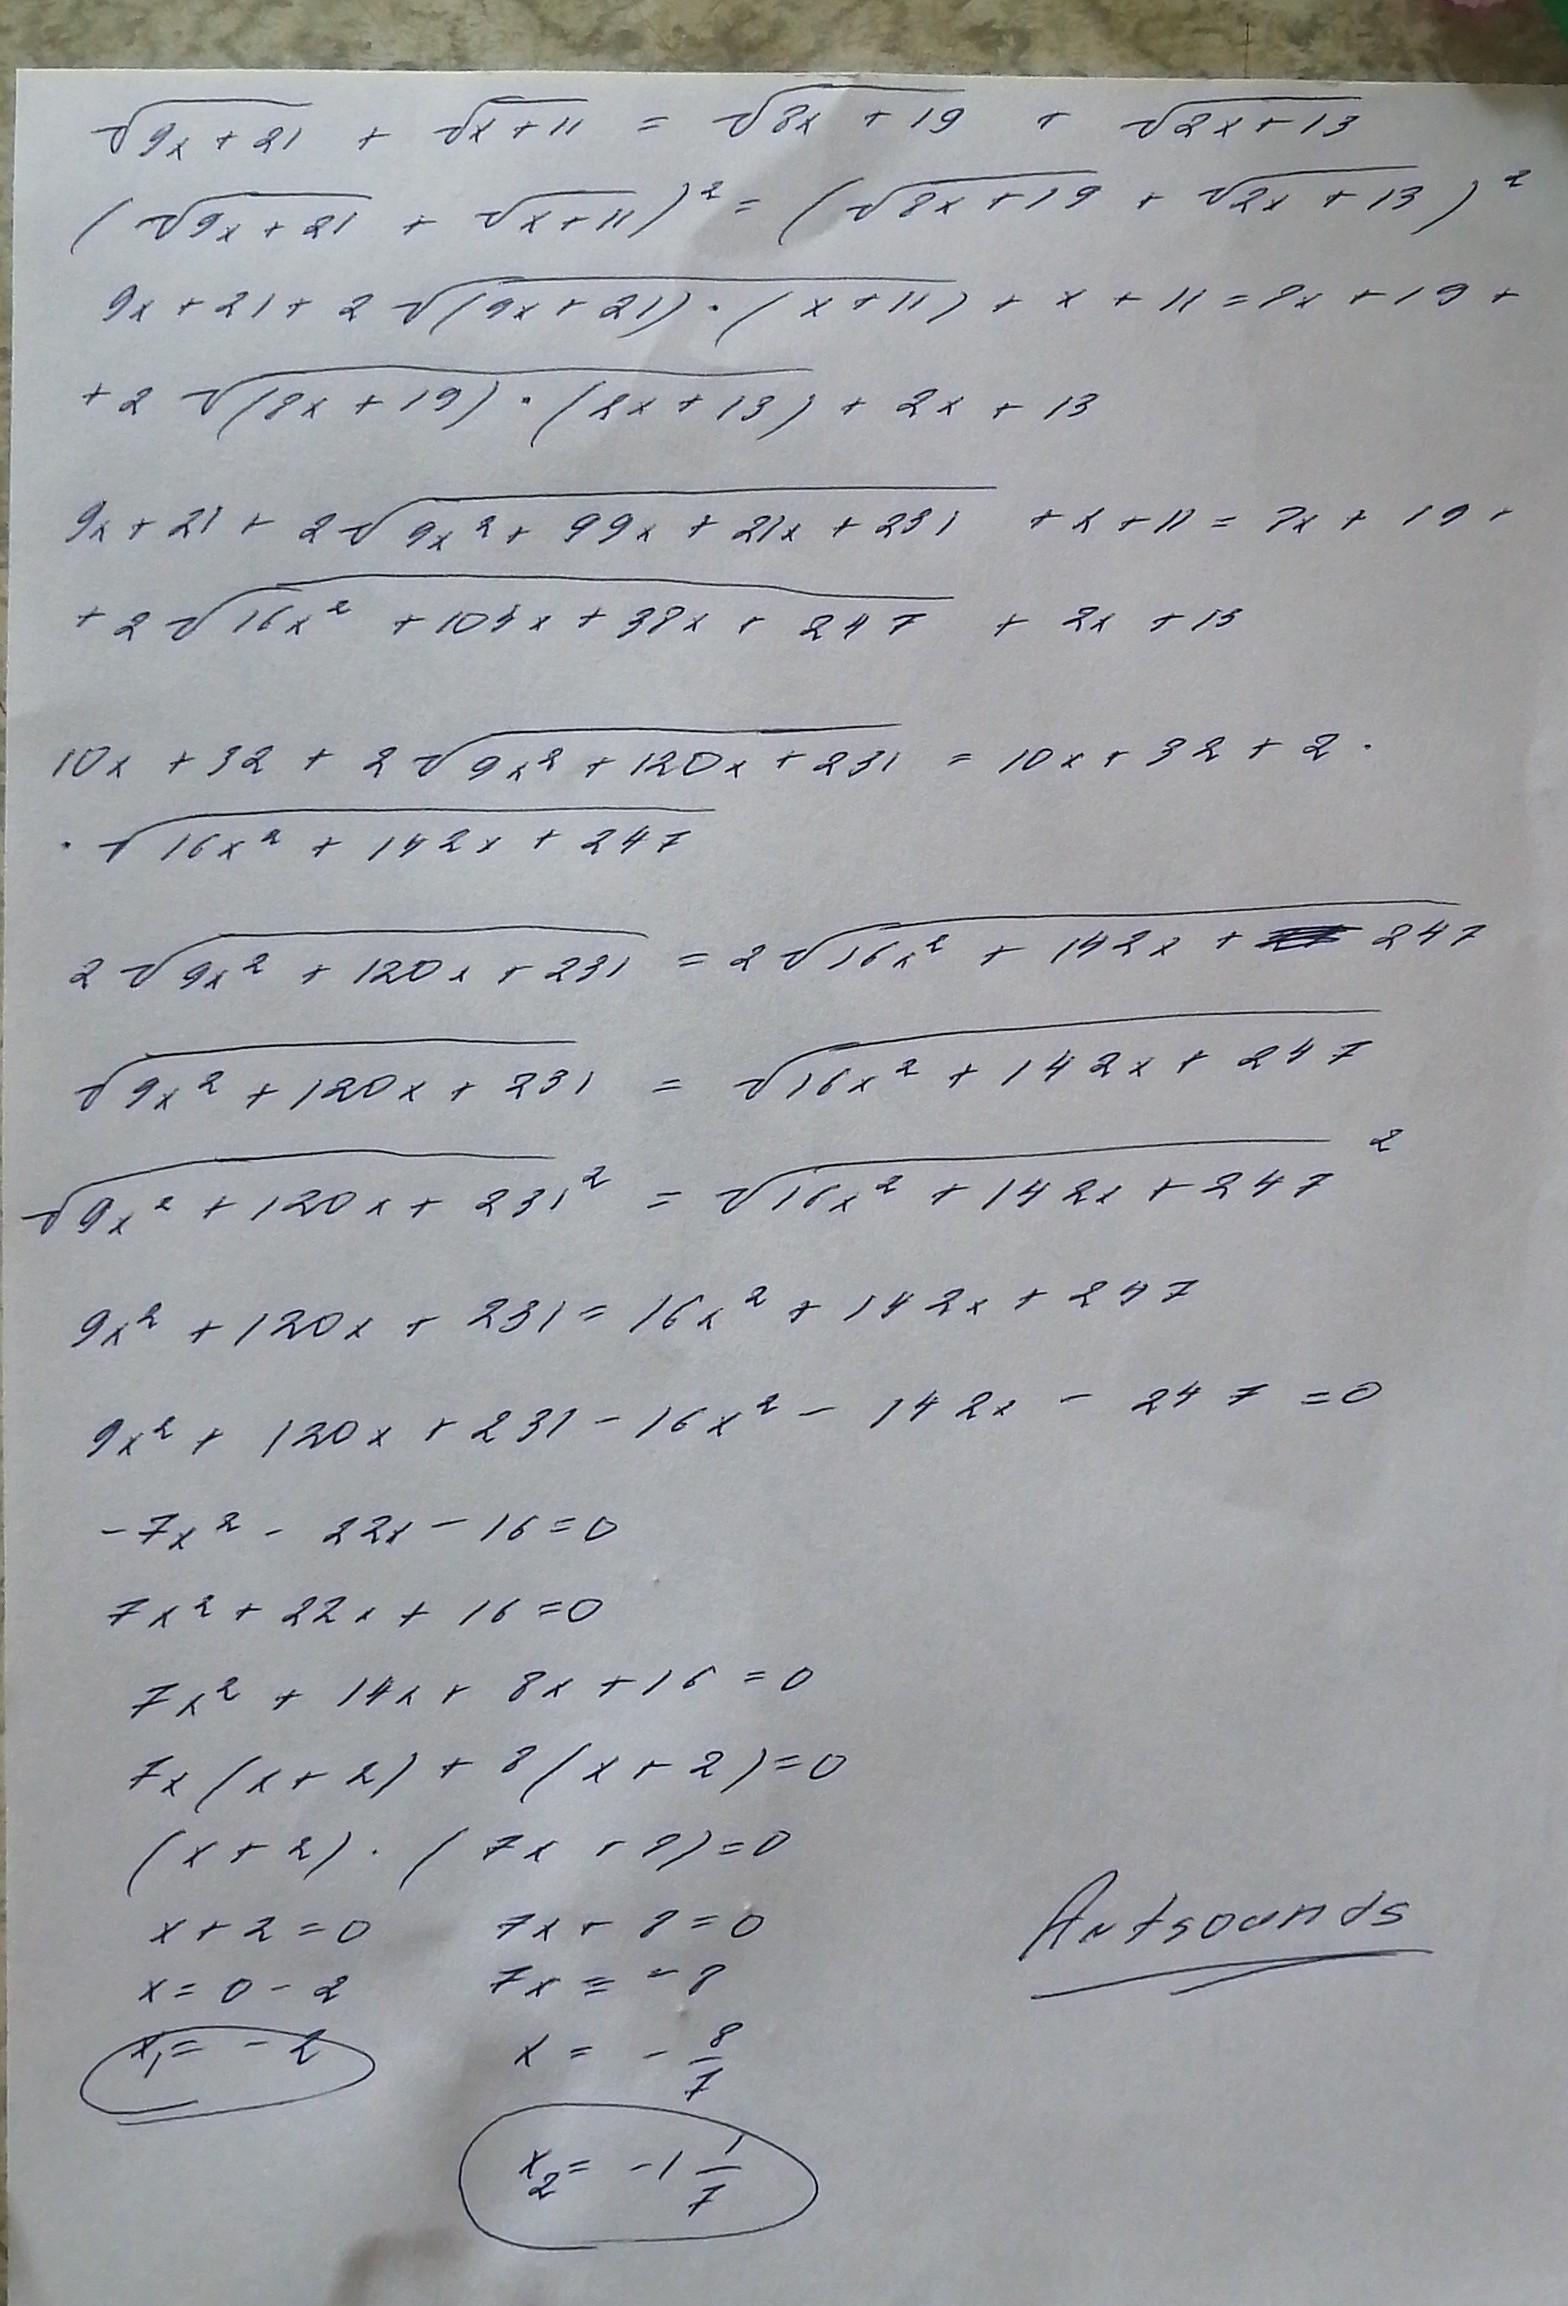 √(9x + 21) + √(x + 11) = √(8x + 19) + √(2x + 13)
(√(9x + 21) + √(x + 11))² = (√(8x + 19) + √(2x + 13))²
9x + 21 + 2√((9x + 21) · (x + 11)) + x + 11 = 8x + 19 +
+ 2√((8x + 19) · (2x + 13)) + 2x + 13
9x + 21 + 2√(9x² + 99x + 21x + 231) + x + 11 = 8x + 19 +
+ 2√(16x² + 104x + 38x + 247) + 2x + 13
10x + 32 + 2√(9x² + 120x + 231) = 10x + 32 + 2 ·
· √(16x² + 142x + 247)
2√(9x² + 120x + 231) = 2√(16x² + 142x + 247)
√(9x² + 120x + 231) = √(16x² + 142x + 247)
√(9x² + 120x + 231)² = √(16x² + 142x + 247)²
9x² + 120x + 231 = 16x² + 142x + 247
9x² + 120x + 231 - 16x² - 142x - 247 = 0
-7x² - 22x - 16 = 0
7x² + 22x + 16 = 0
7x² + 14x + 8x + 16 = 0
7x(x + 2) + 8(x + 2) = 0
(x + 2) · (7x + 8) = 0
x + 2 = 0 7x + 8 = 0
x = 0 - 2 7x = -8
x₁ = -2 x = -8/7
x₂ = -1 1/7
Antsounds